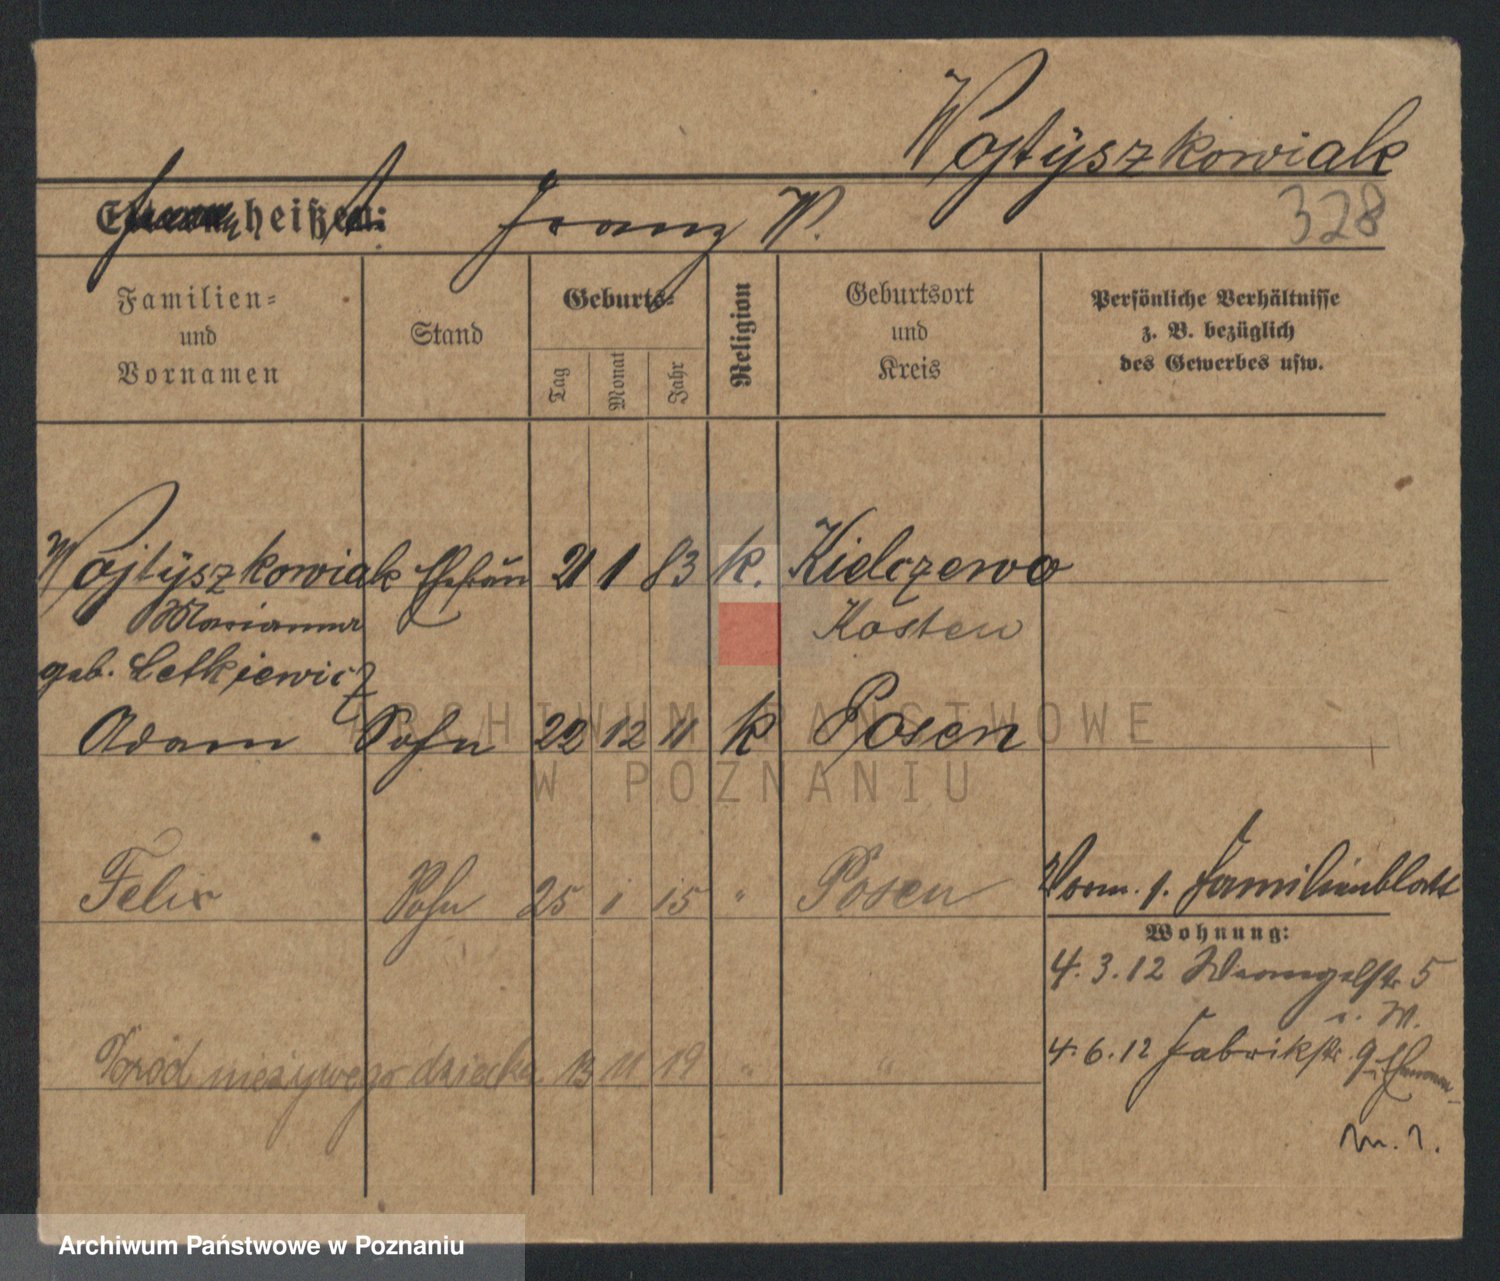 Wojtyszkowiak
heißt: Franz W.
328
Familien-
und
Vornamen
Stand
Geburts-
Tag
Monat
Jahr
Religion
Geburtsort
und
Kreis
Persönliche Verhältnisse
z. B. bezüglich
des Gewerbes usw.
Wojtyszkowiak Ehefrau 21 1 83 k. Kielczewo
Marianna Kosten
geb. Letkiewicz
Adam Sohn 22 12 11 k Posen
ARCHIWUM PAŃSTWOWE
W POZNANIU
Felix Sohn 25 1 15 " Posen
Vorm. s. Familienblatt
Wohnung:
4.3.12 Wrangelstr. 5
4.6.12 Fabrikstr. 9
Poród nieżywego dziecka 13 11 19 " "
Archiwum Państwowe w Poznaniu